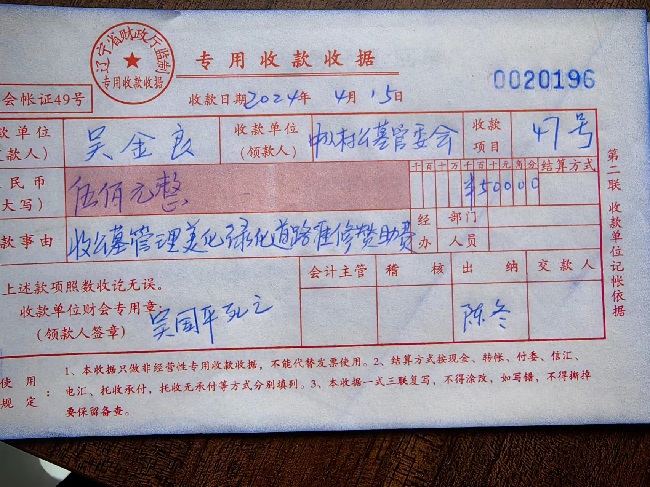 专用收款收据
辽宁省财政厅监制
专用收款收据
会帐证49号
0020196
收款日期 2024年 4月 15日
款单位
款人)
吴金良
收款单位
(领款人)
村公墓管委会
收款
项目
47号
民币
大写)
伍佰元整
千百十万千百十元角分
¥50000
结算方式
款事由
收公墓管理美化绿化道路维修赞助费
经办
部门
人员
上述款项照数收讫无误。
收款单位财会专用章:
(领款人签章)
吴国平
会计主管
稽核
出纳
交款人
陈冬
第二联 收款单位记帐依据
使用
规定:
1、本收据只做非经营性专用收款收据，不能代替发票使用。2、结算方式按现金、转帐、付委、信汇、
电汇、托收承付，托收无承付等方式分别填列。3、本收据一式三联复写，不得涂改，如写错，不得撕掉
要保留备查。